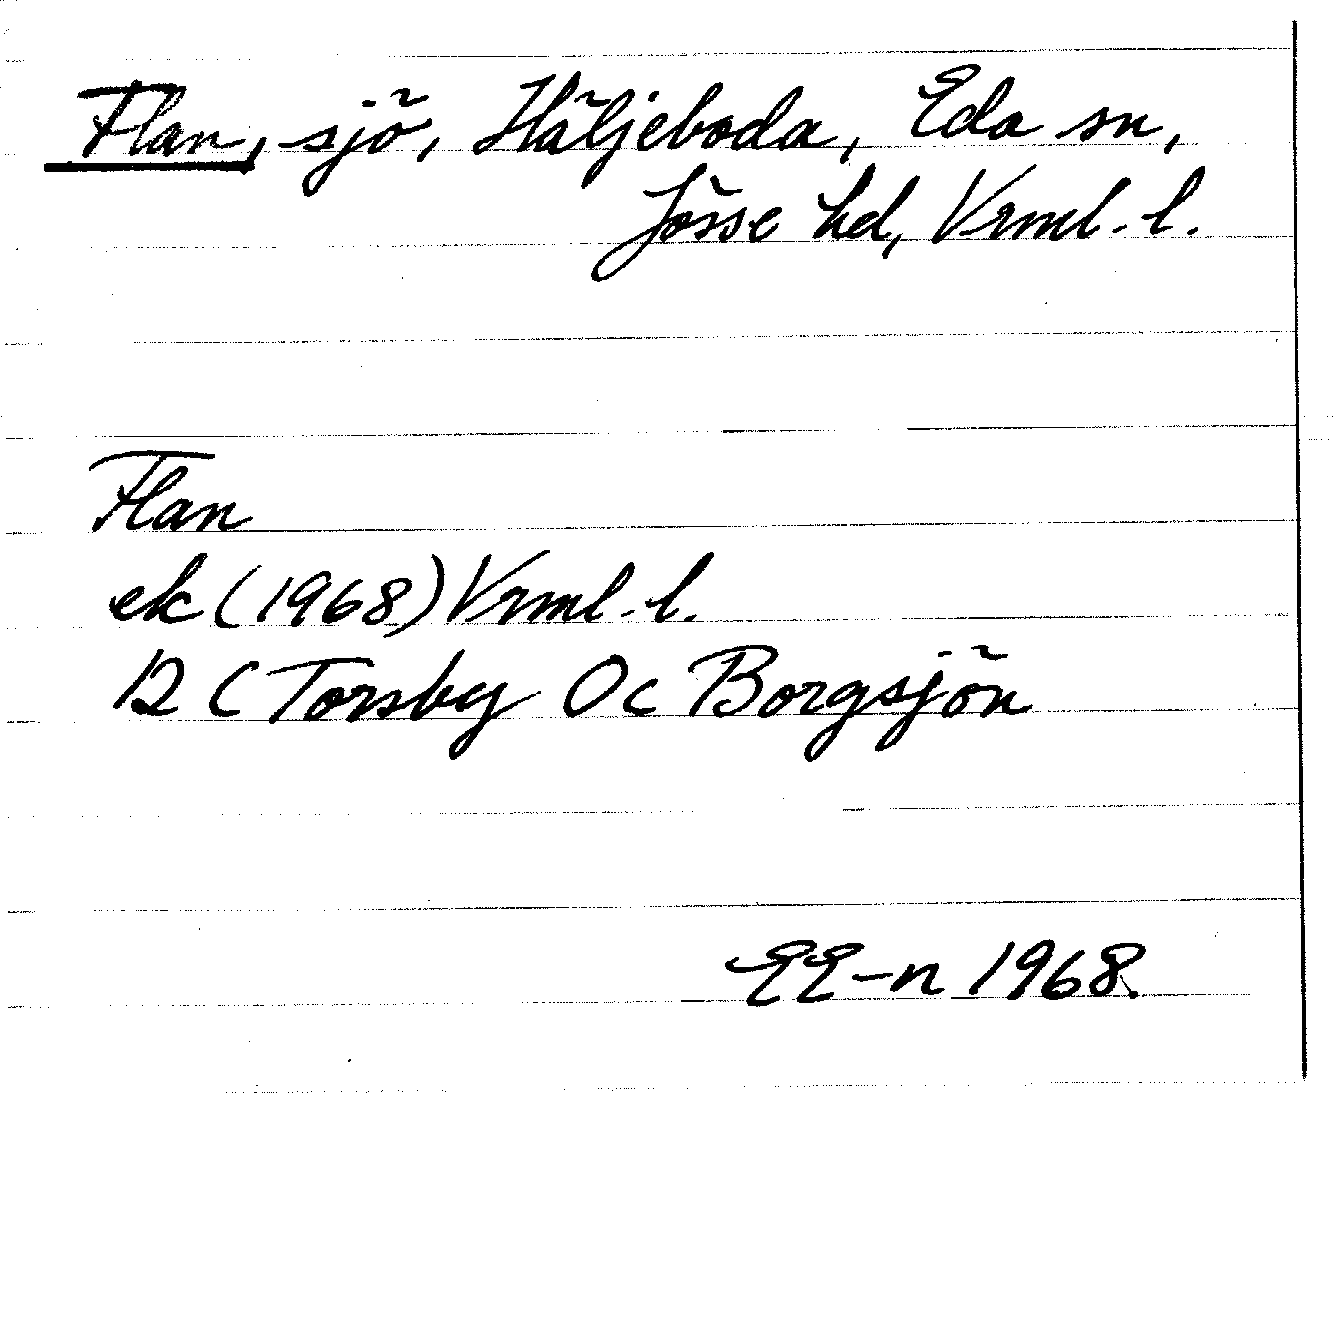 Flan, sjö, Häljeboda, Eda sn,
Jösse hd, Vrml. l.
Flan
ek (1968) Vrml. l.
12 C Torsby 0c Borgsjön
EE-n 1968.